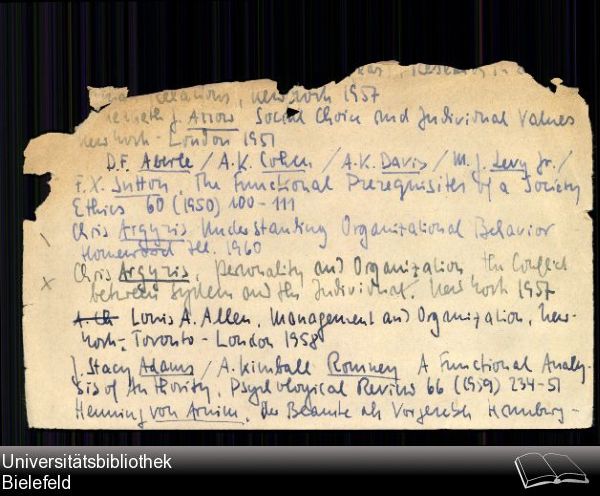 Research in
Relations, New York 1957
Kenneth J. Arrow Social Choice and Individual Values
New York - London 1951
D.F. Aberle / A.K. Cohen / A.K. Davis / M.J. Levy Jr. /
F.X. Sutton, The Functional Prerequisites of a Society
Ethics 60 (1950) 100-111
Chris Argyris Understanding Organizational Behavior
Homewood Ill. 1960
x Chris Argyris, Personality and Organization, the Conflict
between System and the Individual. New York 1957
A. Ch Louis A. Allen, Management and Organization, New-
York-, Toronto - London 1958
J. Stacy Adams / A. Kimball Romney A Functional Analy-
sis of Authority, Psychological Review 66 (1959) 234-51
Henning von Arnim, Der Beamte als Vorgesetzter Hamburg -
Universitätsbibliothek
Bielefeld